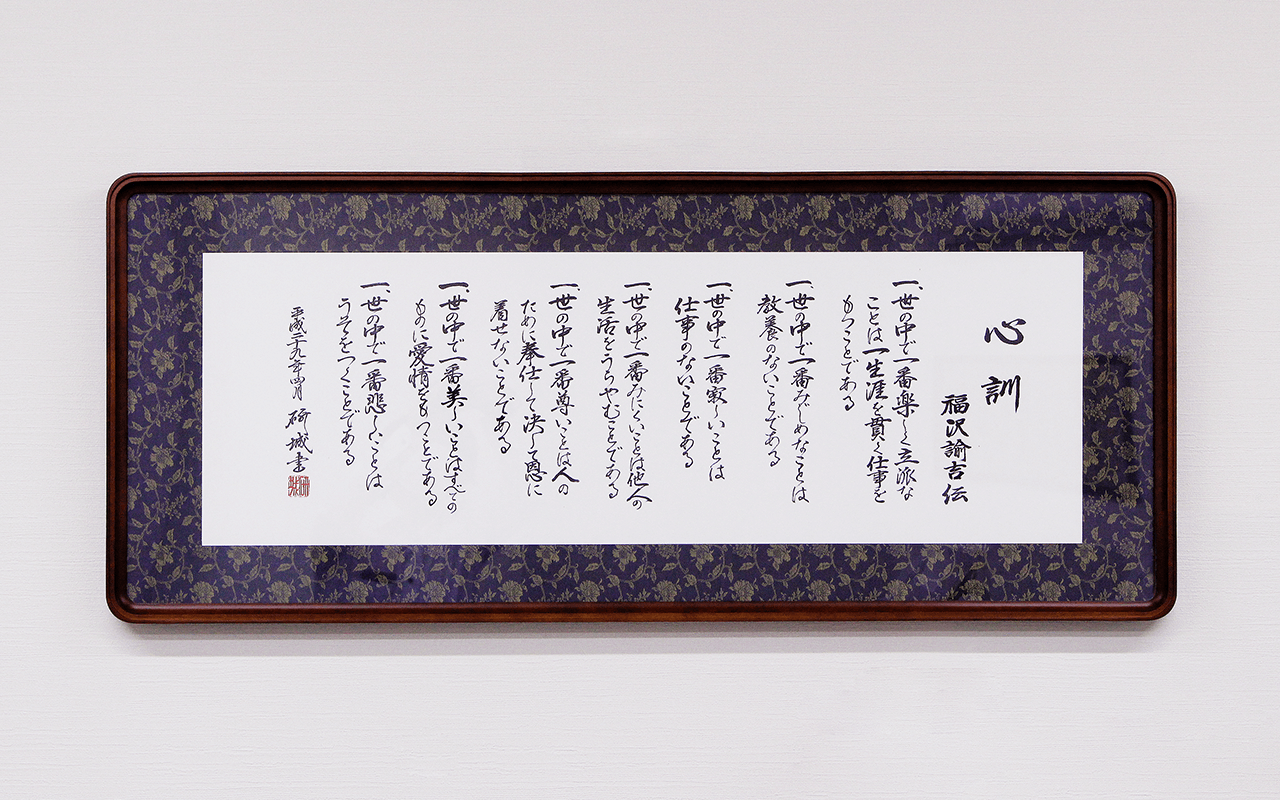 心訓
福沢諭吉伝
一、世の中で一番楽しく立派な
ことは一生涯を貫く仕事を
もつことである
一、世の中で一番みじめなことは
教養のないことである
一、世の中で一番寂しいことは
仕事のないことである
一、世の中で一番みにくいことは他人の
生活をうらやむことである
一、世の中で一番尊いことは人の
ために奉仕して決して恩に
着せないことである
一、世の中で一番美しいことはすべての
ものに愛情をもつことである
一、世の中で一番悲しいことは
うそをつくことである
平成二十九年四月 研城書